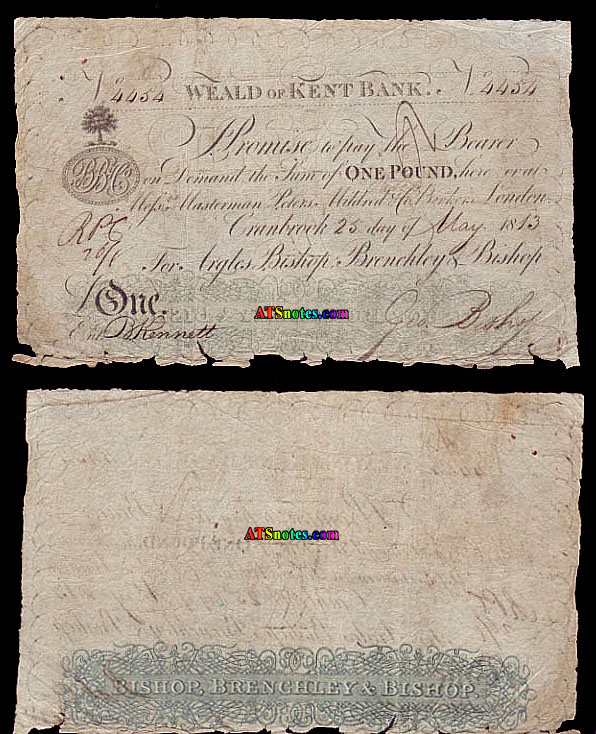 No 4454 WEALD OF KENT BANK. No 4454
I Promise to pay the Bearer
BB&Co
on Demand the Sum of ONE POUND, here or at
Messrs Masterman Peters Mildred & Co Bankers London.
Cranbrook 25 day of May 1813
For Argles, Bishop, Brenchley & Bishop
£One.
ATSnotes.com
Entd Kennett
ATSnotes.com
BISHOP, BRENCHLEY & BISHOP.